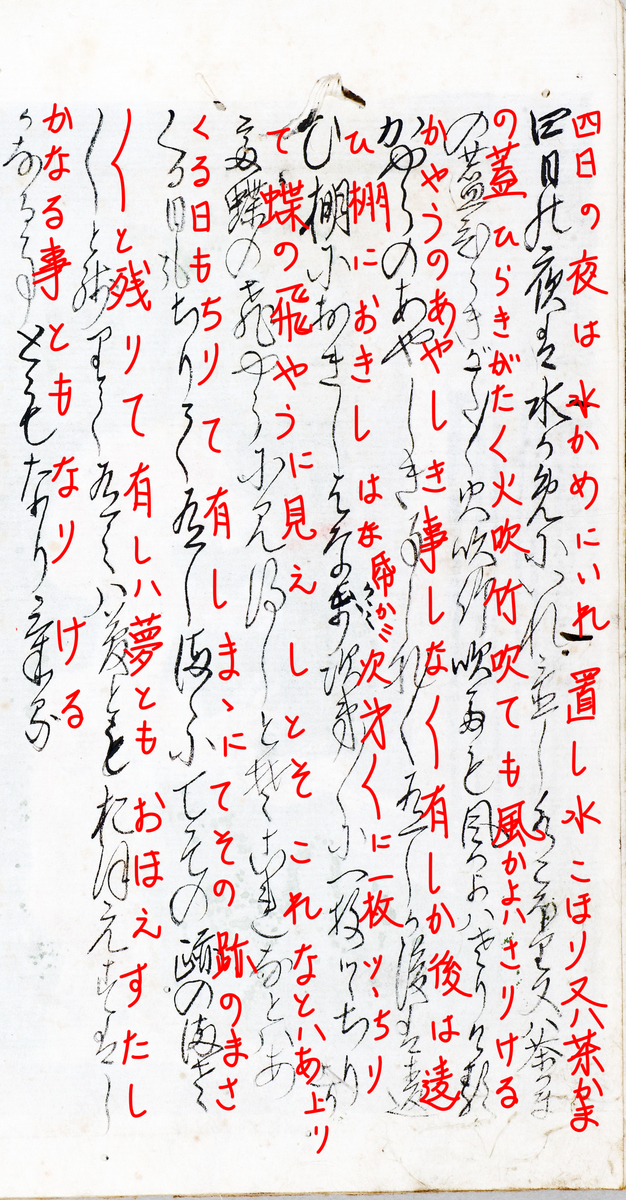 四日の夜は水かめにいれ置し水こほり又ハ茶かま
の蓋ひらきがたく火吹竹吹ても風かよハさりける
かやうのあやしき事しな〱有しか後は違
ひ棚におきしはな帋次第〱に一枚ツヽちり
て蝶の飛やうに見えしとそこれなとハあ
くる日もちりて有しまゝにてその跡のまさ
〱と残りて有しハ夢ともおほえすたし
かなる事ともなりける